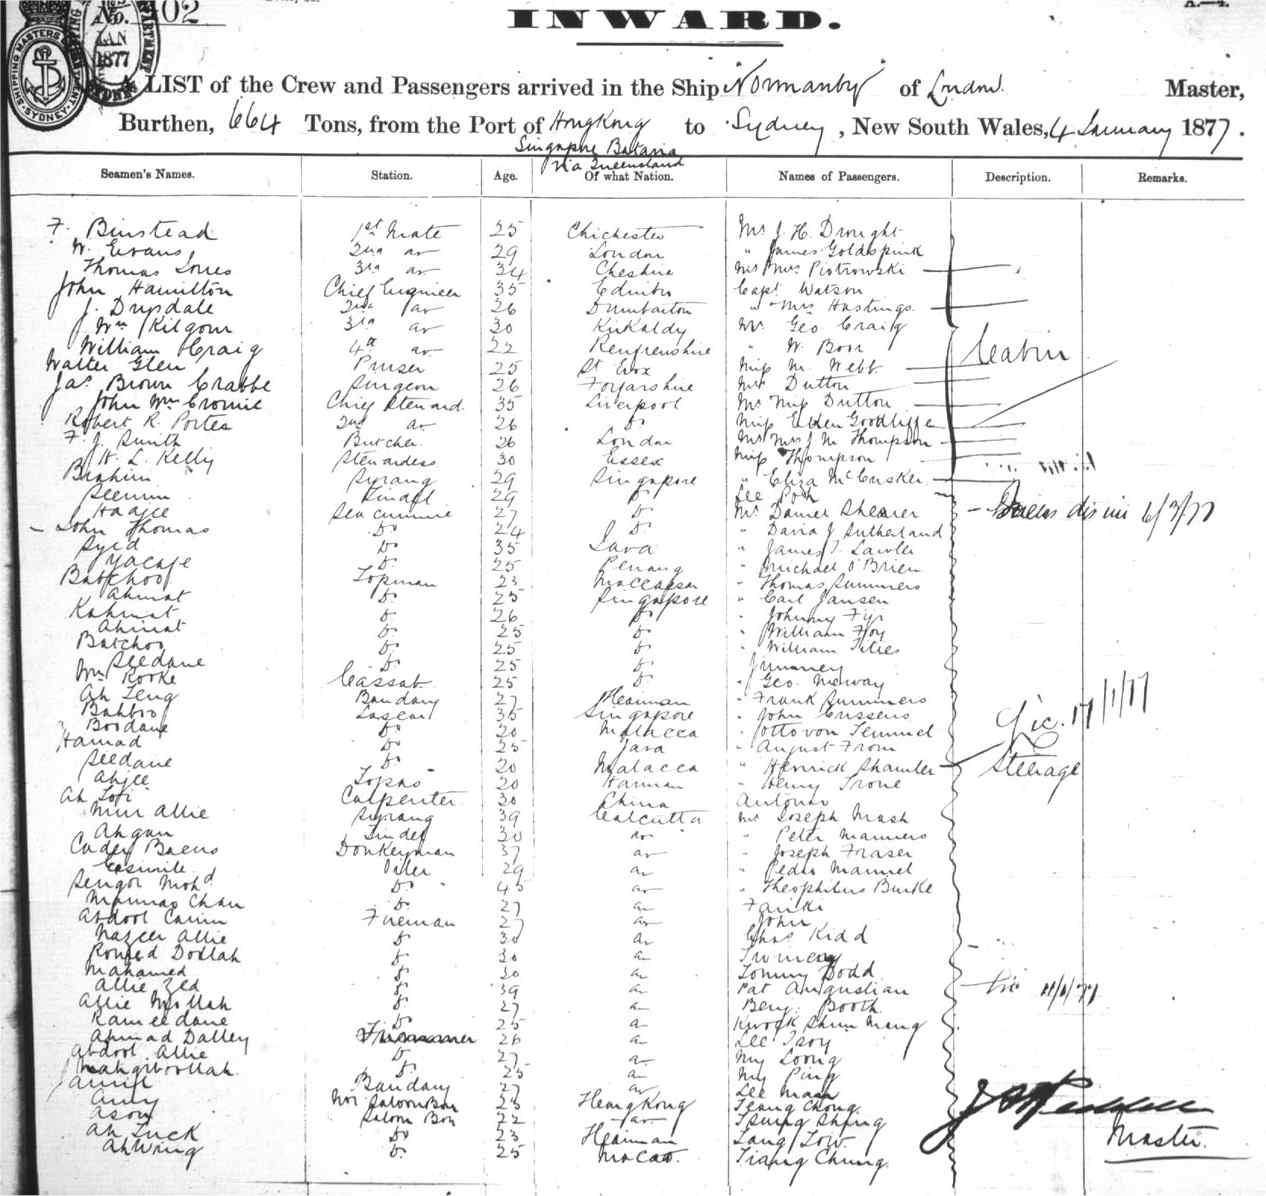 No. 102
JAN
1877
SHIPPING MASTERS
SYDNEY
INWARD.
A LIST of the Crew and Passengers arrived in the Ship Normanby of London Master,
Burthen, 664 Tons, from the Port of HongKong to Sydney, New South Wales, 4 January 1877.
Singapore Batavia
via Queensland
Seamen's Names. Station. Age. Of what Nation. Names of Passengers. Description. Remarks.
F. Binstead 1st Mate 25 Chichester Mr J. H. Drought
W. Evans 2nd do 29 London " James Goldspink
Thomas Jones 3rd do 34 Cheshire Mr Mrs Piotrowski
John Hamilton Chief Engineer 35 Edinbro Capt Watson
J. Drysdale 2nd do 26 Dumbarton " Mrs Hastings
Wm Kilgour 3rd do 30 Kirkaldy Mr Geo Craig
William Craig 4th do 22 Renfrewshire " W. Born Cabin
Walter Glen Purser 25 Miss M. Webb
Jas Brown Crabbe Surgeon 26 Forfarshire Mrs Dutton
John Wm Cromie Chief Steward 35 Liverpool Mr Miss Dutton
Robert R. Portes 2nd do 26 do Miss Ellen Goodliffe
F. J. Smith Butcher 26 London Mr Mrs J. M. Thompson
H. L. Kelly Stewardess 30 Essex Miss Thompson
Brahim Syrang 29 Singapore " Eliza McCusker
Seenun Tindal 29 do Lee Poh
Haajee Seacunnie 27 do Mr Damer Shearer 6/3/77
John Thomas do 24 do " David J Sutherland
Syed do 35 Java " James T. Lawler
Yacaje do 25 Penang " Michael O'Brien
Batchoo Topman 23 Maccassa " Thomas Summers
Ahmat do 25 Singapore " Carl Jansen
Kahmat do 26 do " Johnny Fiji
Ahmat do 25 do " William Foy
Batchoo do 25 do " William Files
Seedane do 25 do Jimmey
Wm Rooke Cassab 25 do " Geo. Meway
Ah Teng Bandary 27 Hainan " Frank Summers
Bahboo Lascar 35 Singapore " John Crissens Lic. 17/1/77
Boodane do 20 Malacca " Otto von Temmel
Hamad do 25 Java " August From
Seedane do 20 Malacca " Henrick Shamler Steerage
Ahjee Topas 20 Hainan " Henry Trone
Ah Tofi Carpenter 30 China Antonio
Mur Allie Syrang 39 Calcutta Mr Joseph Mash
Ahgan Tindel 30 do " Peter Manners
Cader Baens Donkeyman 37 do " Joseph Fraser
Casimile Oiler 29 do " Pedro Manuel
Sengor Mohd do 45 do " Theophilus Burke
Munnao Chan do 27 do Fariki
Abdool Carim Fireman 27 do John
Nazeer Allie do 30 do Chas Kidd
Ronjed Dodlah do 30 do Twomeny
Mahamed do 30 do Tommy Dodd
Allie Zed do 39 do Pat Augustian Lic 11/1/77
Allie Mollah do 27 do Benj. Booth
Rameedane do 25 do Kwock Shun Mang
Ahmad Dalley Trimmer 26 do Lee Troy
Abdool Allie do 27 do My Loong
Mahgiboollah do 25 do My Ping
Jamil Bandary 27 do Lee Maan
Amy No1 Saloon Boy 23 HongKong Teang Chong
Asow Saloon Boy 22 do Tsung Shing
Ah Tuck do 23 Hainan Lang Low Master
Ah Wing do 25 Macao Tiang Chung